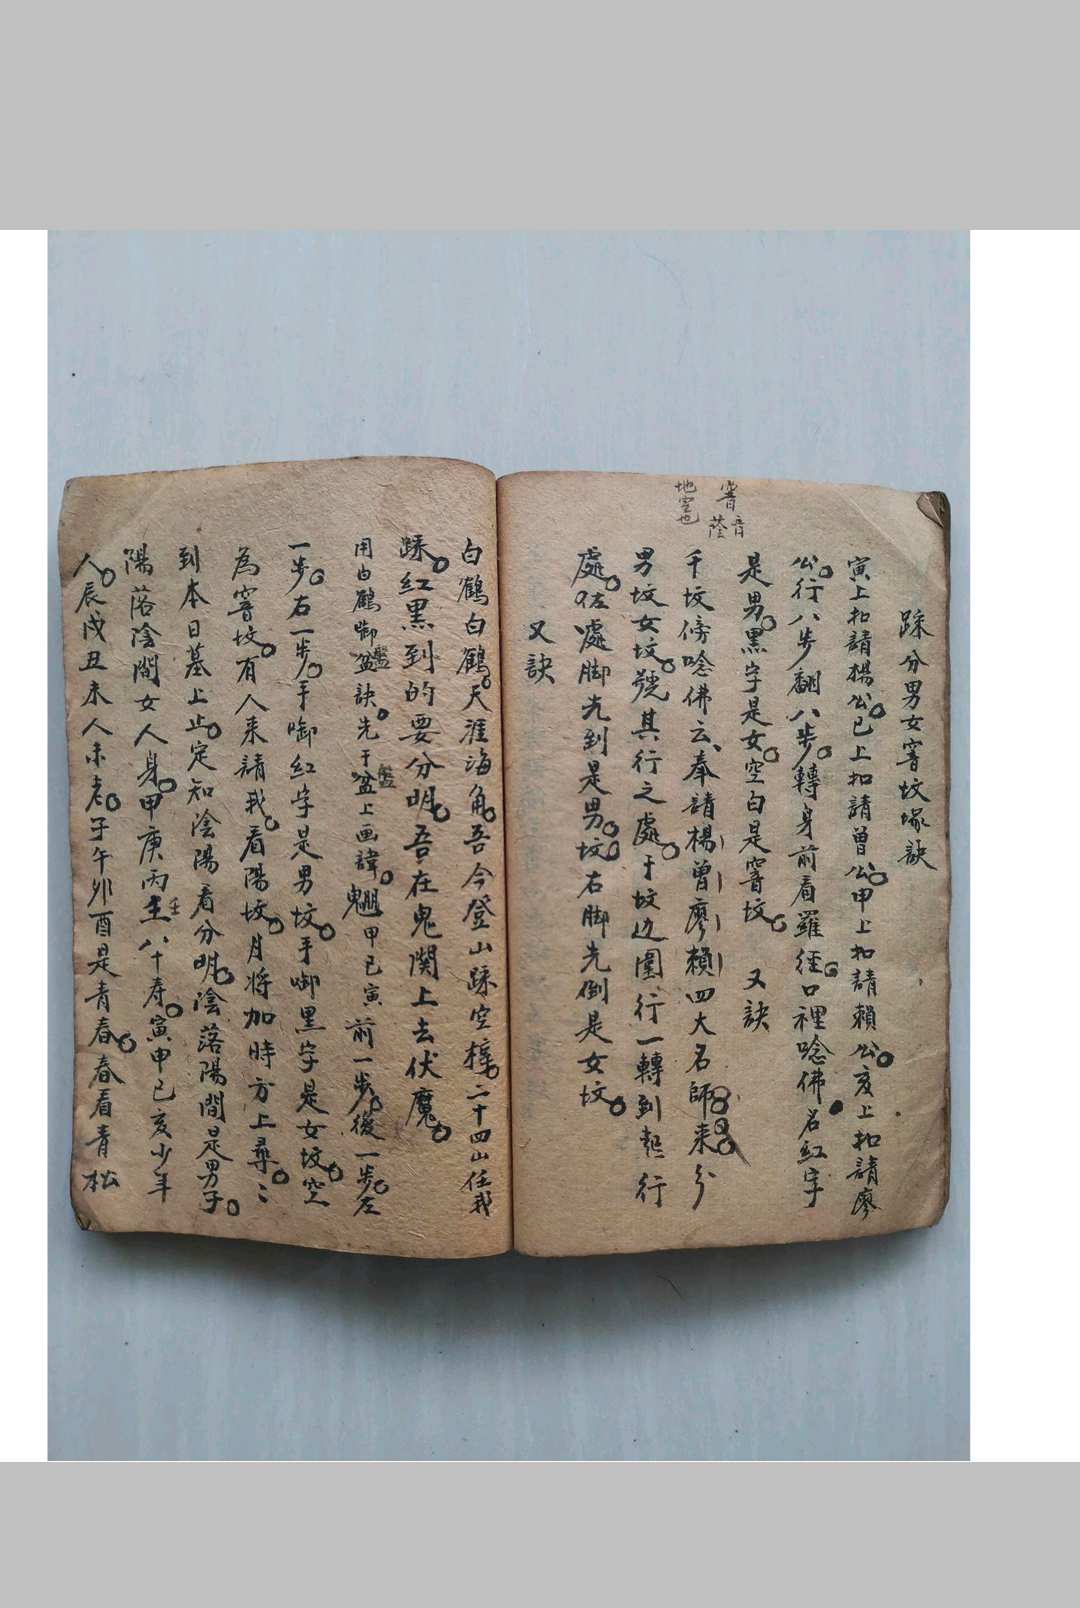 踩分男女窨坟塚訣
寅上扣請楊公巳上扣請曾公甲上扣請賴公亥上扣請廖
公行八步翻八步轉身前看羅經口裡唸佛名紅字
是男黑字是女空白是窨坟 又訣
窨音
蔭
地空也
千坟傍唸佛云奉請楊曾廖賴四大名師来分
男坟女坟號其行之處于坟边圍行一轉到起行
處佐處脚先到是男坟右脚先倒是女坟
又訣
白鶴白鶴天涯海角吾今登山踩空槨二十四山任我
踩紅黑到的要分明吾在鬼関上去伏魔
用白鶴啣盆訣先于盆上画諱 甲巳寅前一步後一步左
盤
盤
一步右一步手啣紅字是男坟手啣黑字是女坟空
為窨坟有人来請我看陽坟月將加時方上尋〻
到本日墓上止定知陰陽看分明陰落陽間是男子
陽落陰間女人身甲庚丙壬八十寿寅申巳亥少年
壬
人辰戌丑未人未老子午夘酉是青春春看青松